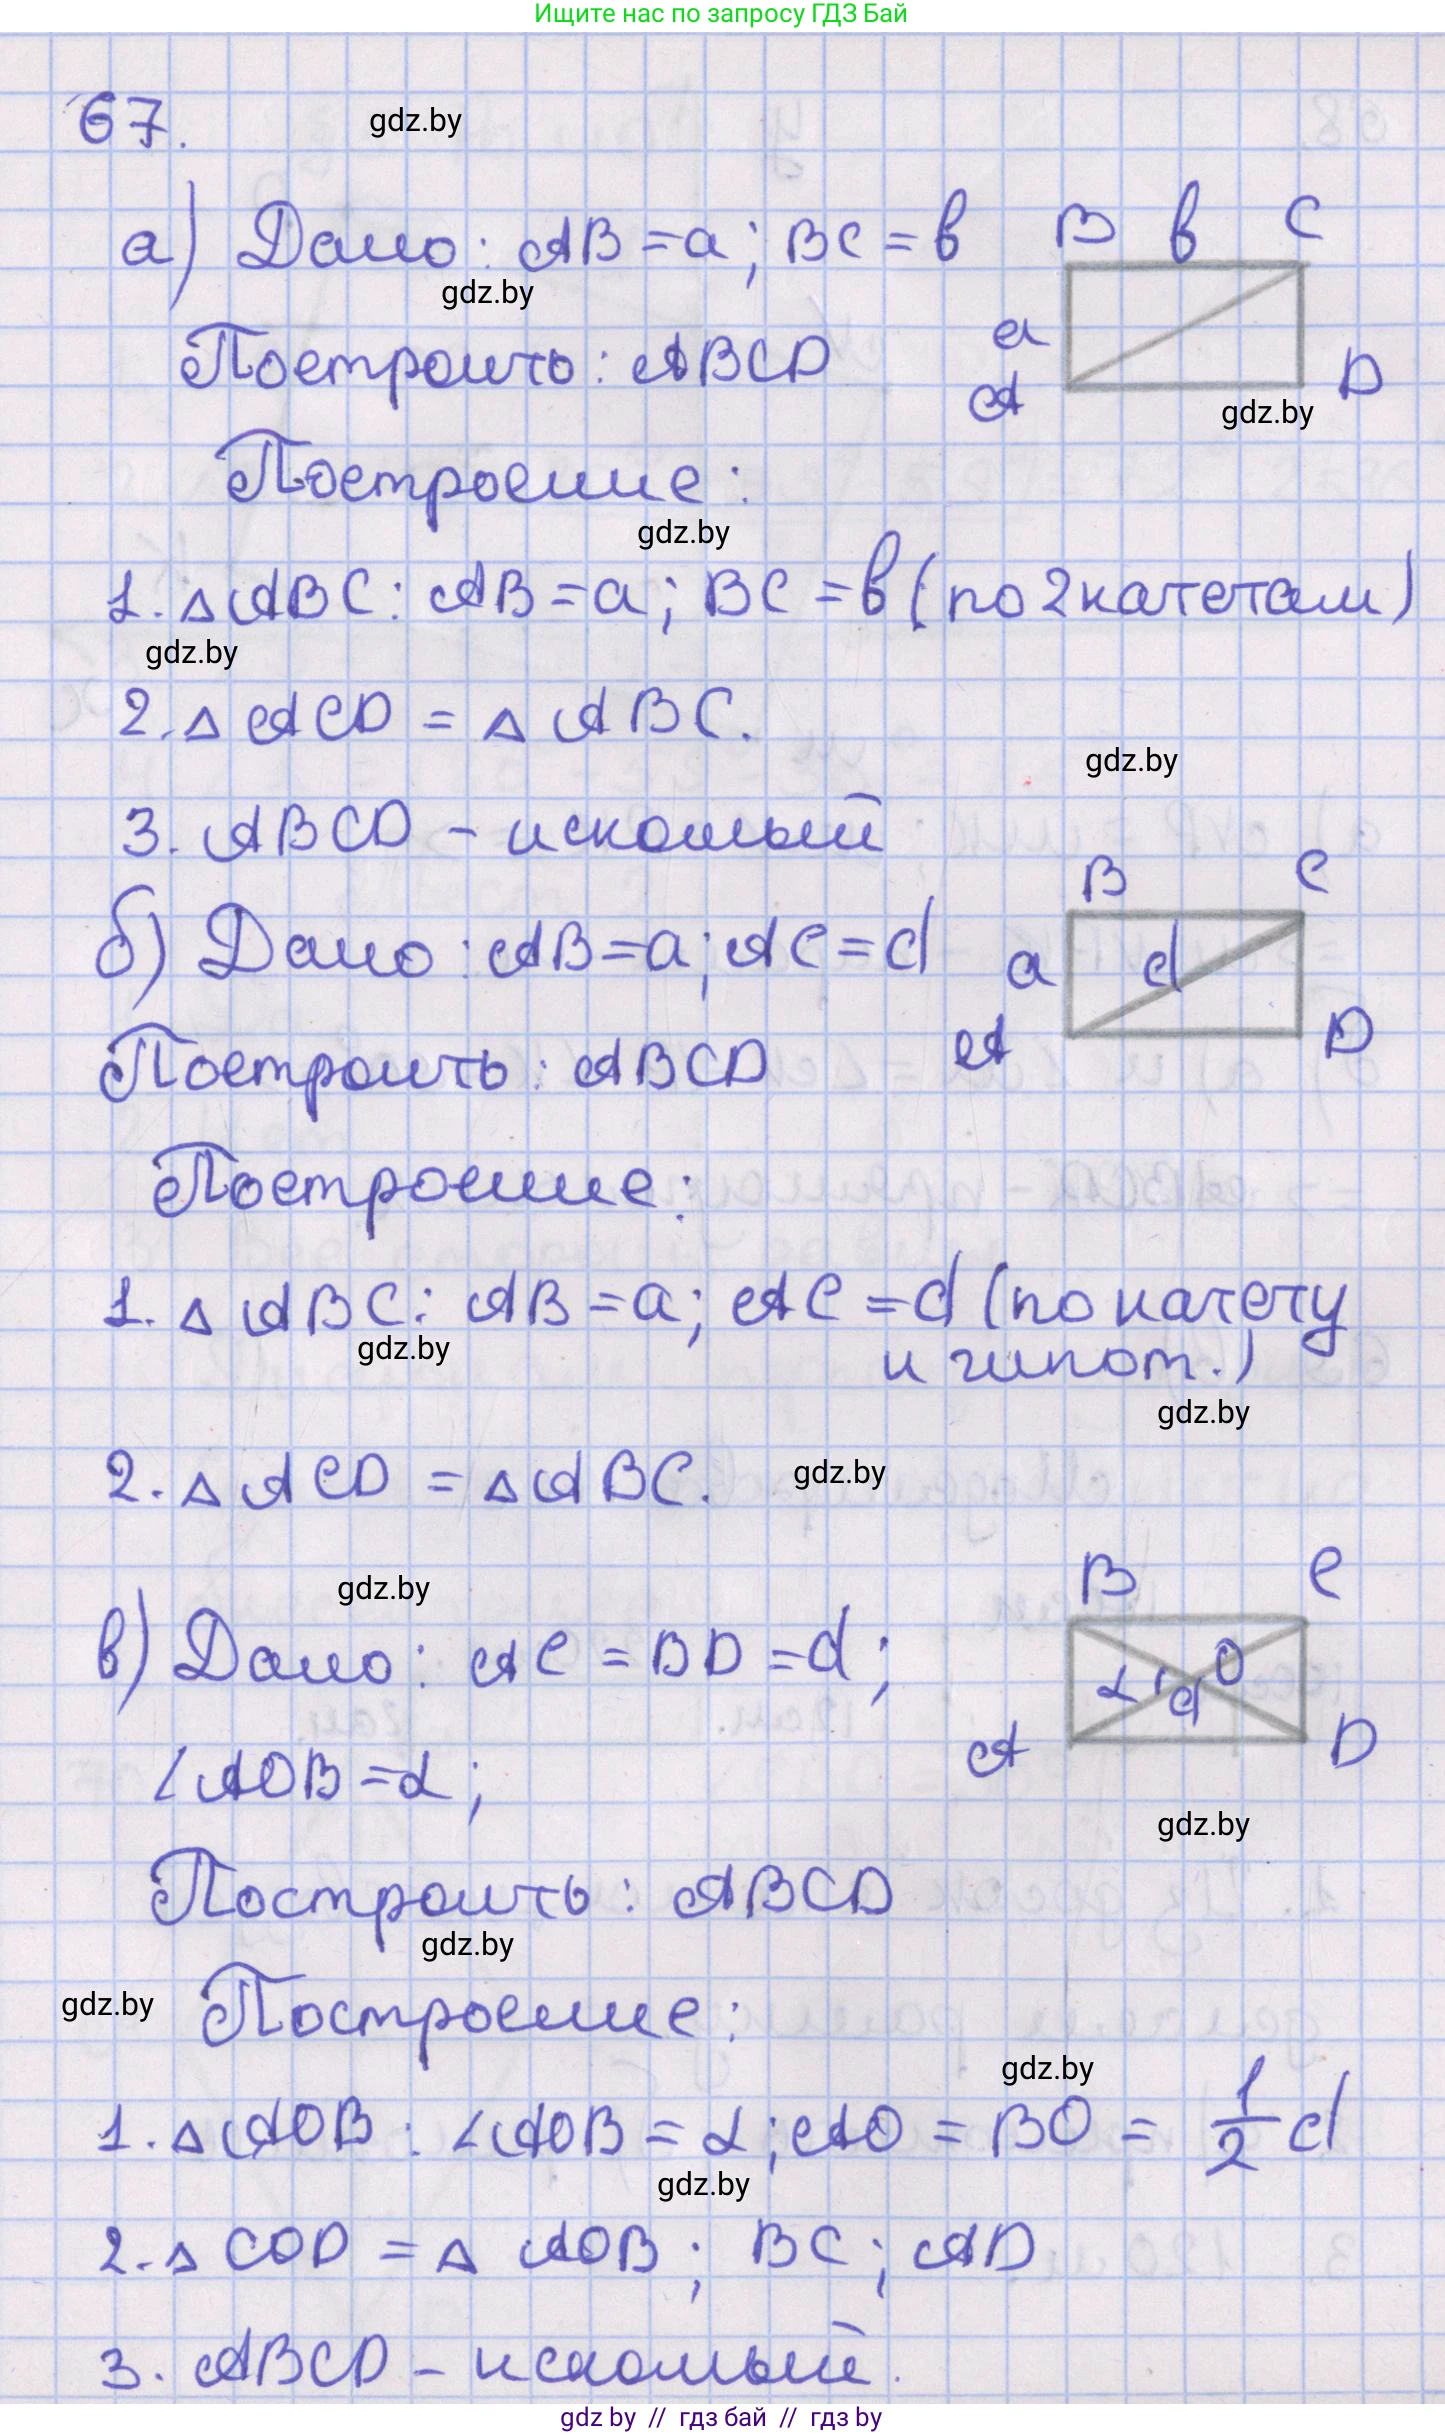 Ищите нас по запросу ГДЗ Бай
67.
gdz.by
а) Дано: AB = a; BC = b
B b C
gdz.by
a
Построить: ABCD
A D
gdz.by
Построение:
gdz.by
1. △ ABC: AB = a; BC = b (по 2 катетам)
gdz.by
2. △ ACD = △ ABC.
gdz.by
3. ABCD - искомый
B C
б) Дано: AB = a; AC = d
a d
A D
Построить: ABCD
Построение:
1. △ ABC: AB = a; AC = d (по катету
gdz.by
и гипот.)
gdz.by
2. △ ACD = △ ABC.
gdz.by
B C
gdz.by
в) Дано: AC = BD = d;
α d O
A D
∠AOB = α;
gdz.by
Построить: ABCD
gdz.by
gdz.by
Построение:
gdz.by
1. △ AOB: ∠AOB = α; AO = BO = 1/2 d
gdz.by
2. △ COD = △ AOB; BC; AD
3. ABCD - искомый.
gdz by // гдз бай // гдз by